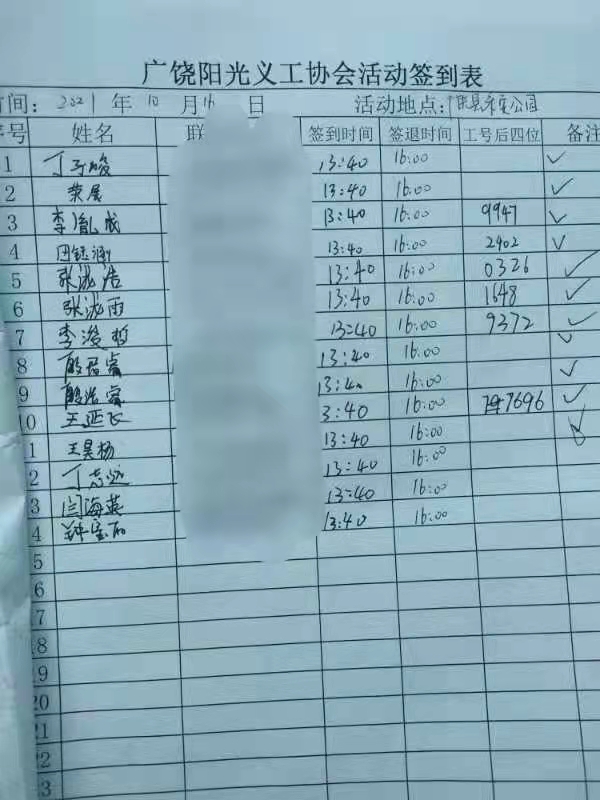 广饶阳光义工协会活动签到表
间: 2021 年 10 月 16 日 活动地点:
序号 姓名 联 签到时间 签退时间 工号后四位 备注
1 丁子峻 13:40 16:00 ✓
2 荣展 13:40 16:00 ✓
3 李胤成 13:40 16:00 9947 ✓
4 田钰涵 13:40 16:00 2902 ✓
5 张泷浩 13:40 16:00 0326 ✓
6 张泷雨 13:40 16:00 1648 ✓
7 李澄哲 13:40 16:00 9372 ✓
8 殷君睿 13:40 16:00 ✓
9 殷浩睿 13:40 16:00 ✓
10 王延飞 3:40 16:00 7696 ✓
1 王昊杨 13:40 16:00
2 丁志远 13:40 16:00
3 闫海英 13:40 16:00
4 钟宝 13:40 16:00
15
16
17
18
19
20
21
22
23